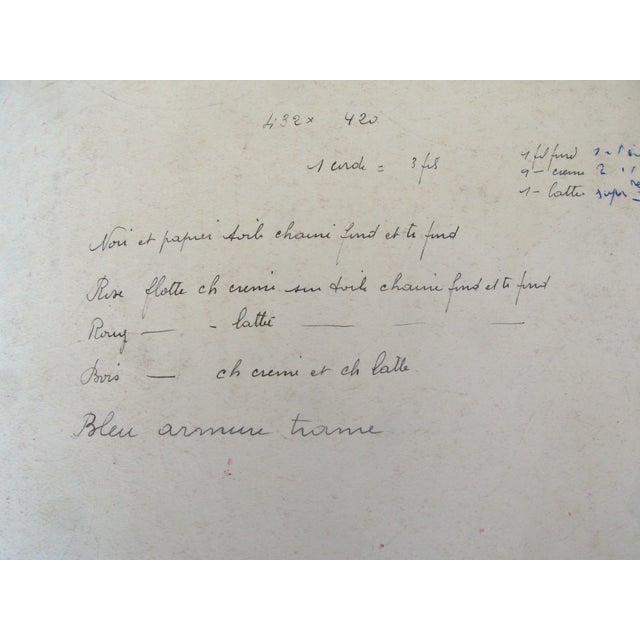 432 x 420
1 corde = 3 fils
1 fil fond
1 - creme 2
1 - latte supr
Noir et papier toile chaine fond et te fond
Rose flotte ch creme sur toile chaine fond et te fond
Roug — - latte — — —
Bois — ch creme et ch latte
Bleu armure trame